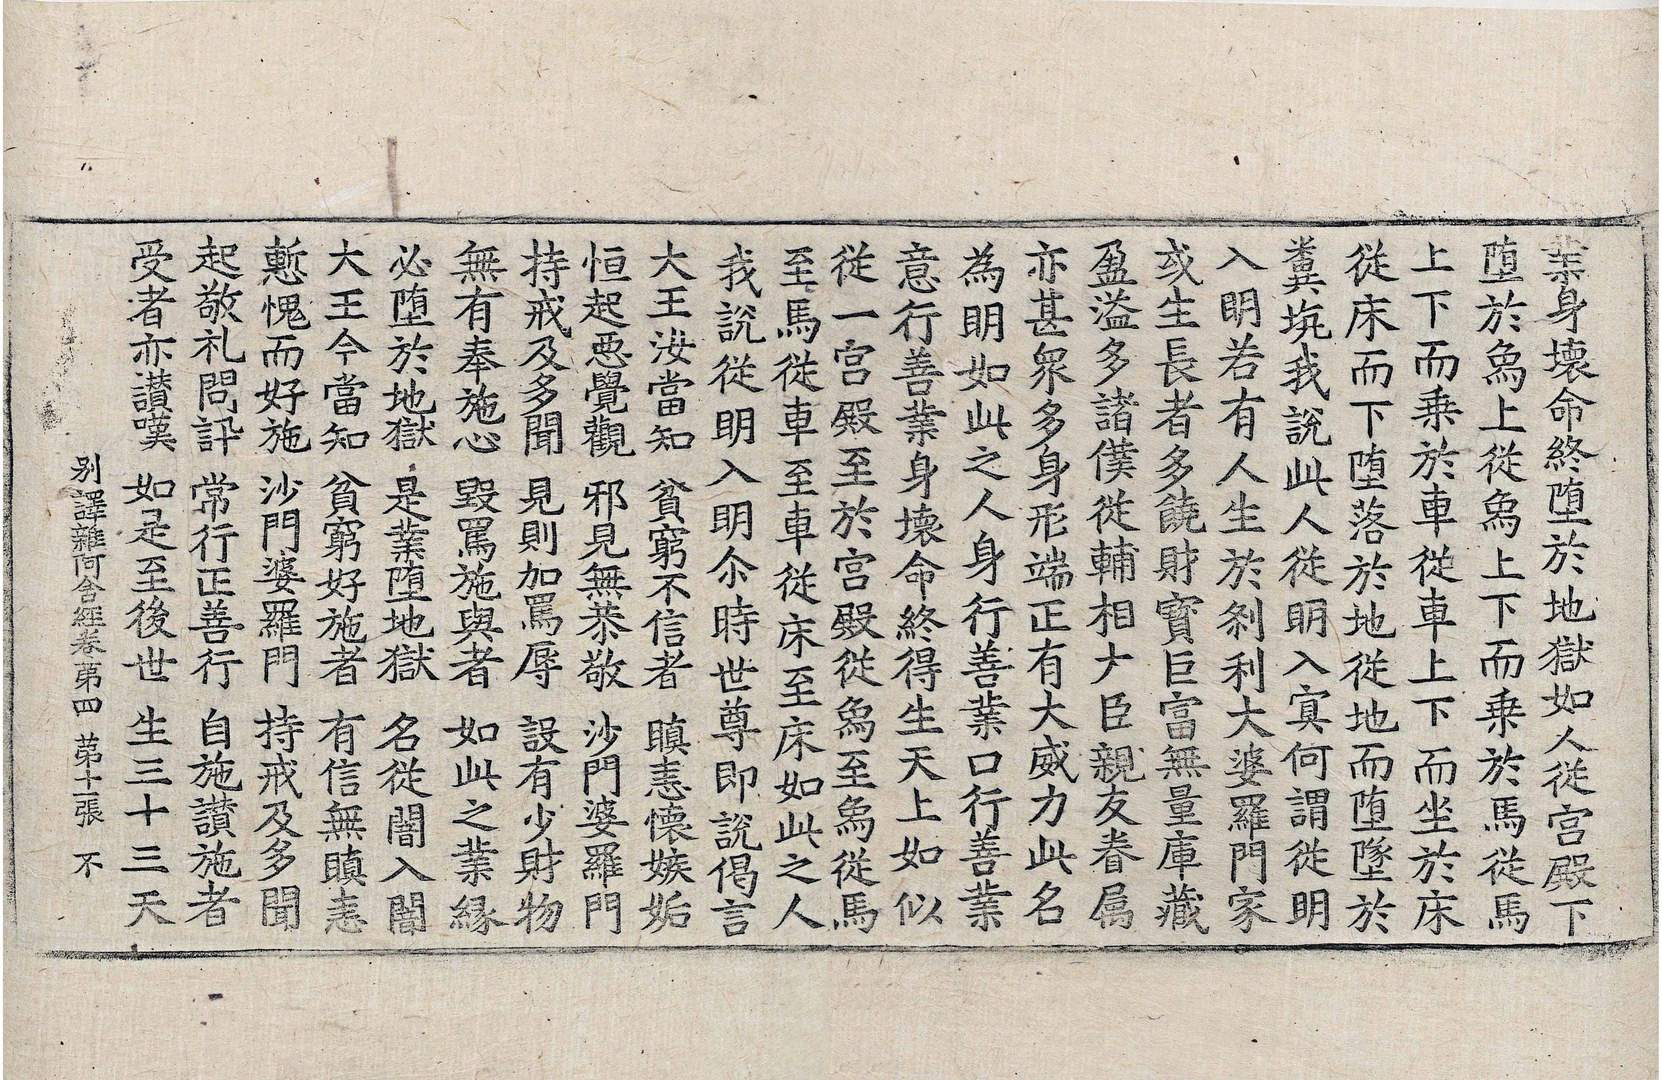 業身壞命終墮於地獄如人從宮殿下
墮於象上從象上下而乗於馬從馬
上下而乗於車從車上下而坐於床
從床而下墮落於地從地而墮墜於
糞坑我說此人從明入冥何謂從明
入明若有人生於刹利大婆羅門家
或生長者多饒財寶巨富無量庫藏
盈溢多諸僕從輔相大臣親友眷屬
亦甚衆多身形端正有大威力此名
為明如此之人身行善業口行善業
意行善業身壞命終得生天上如似
從一宮殿至於宮殿從象至象從馬
至馬從車至車從床至床如此之人
我說從明入明尒時世尊即說偈言
大王汝當知　貧窮不信者　瞋恚懷嫉妬
恒起惡覺觀　邪見無恭敬　沙門婆羅門
持戒及多聞　見則加罵辱　設有少財物
無有奉施心　毀罵施與者　如此之業緣
必墮於地獄　是業墮地獄　名從闇入闇
大王今當知　貧窮好施者　有信無瞋恚
慙愧而好施　沙門婆羅門　持戒及多聞
起敬礼問訊　常行正善行　自施讃施者
受者亦讃嘆　如是至後世　生三十三天
别譯雜阿含經卷第四　第十一張　不